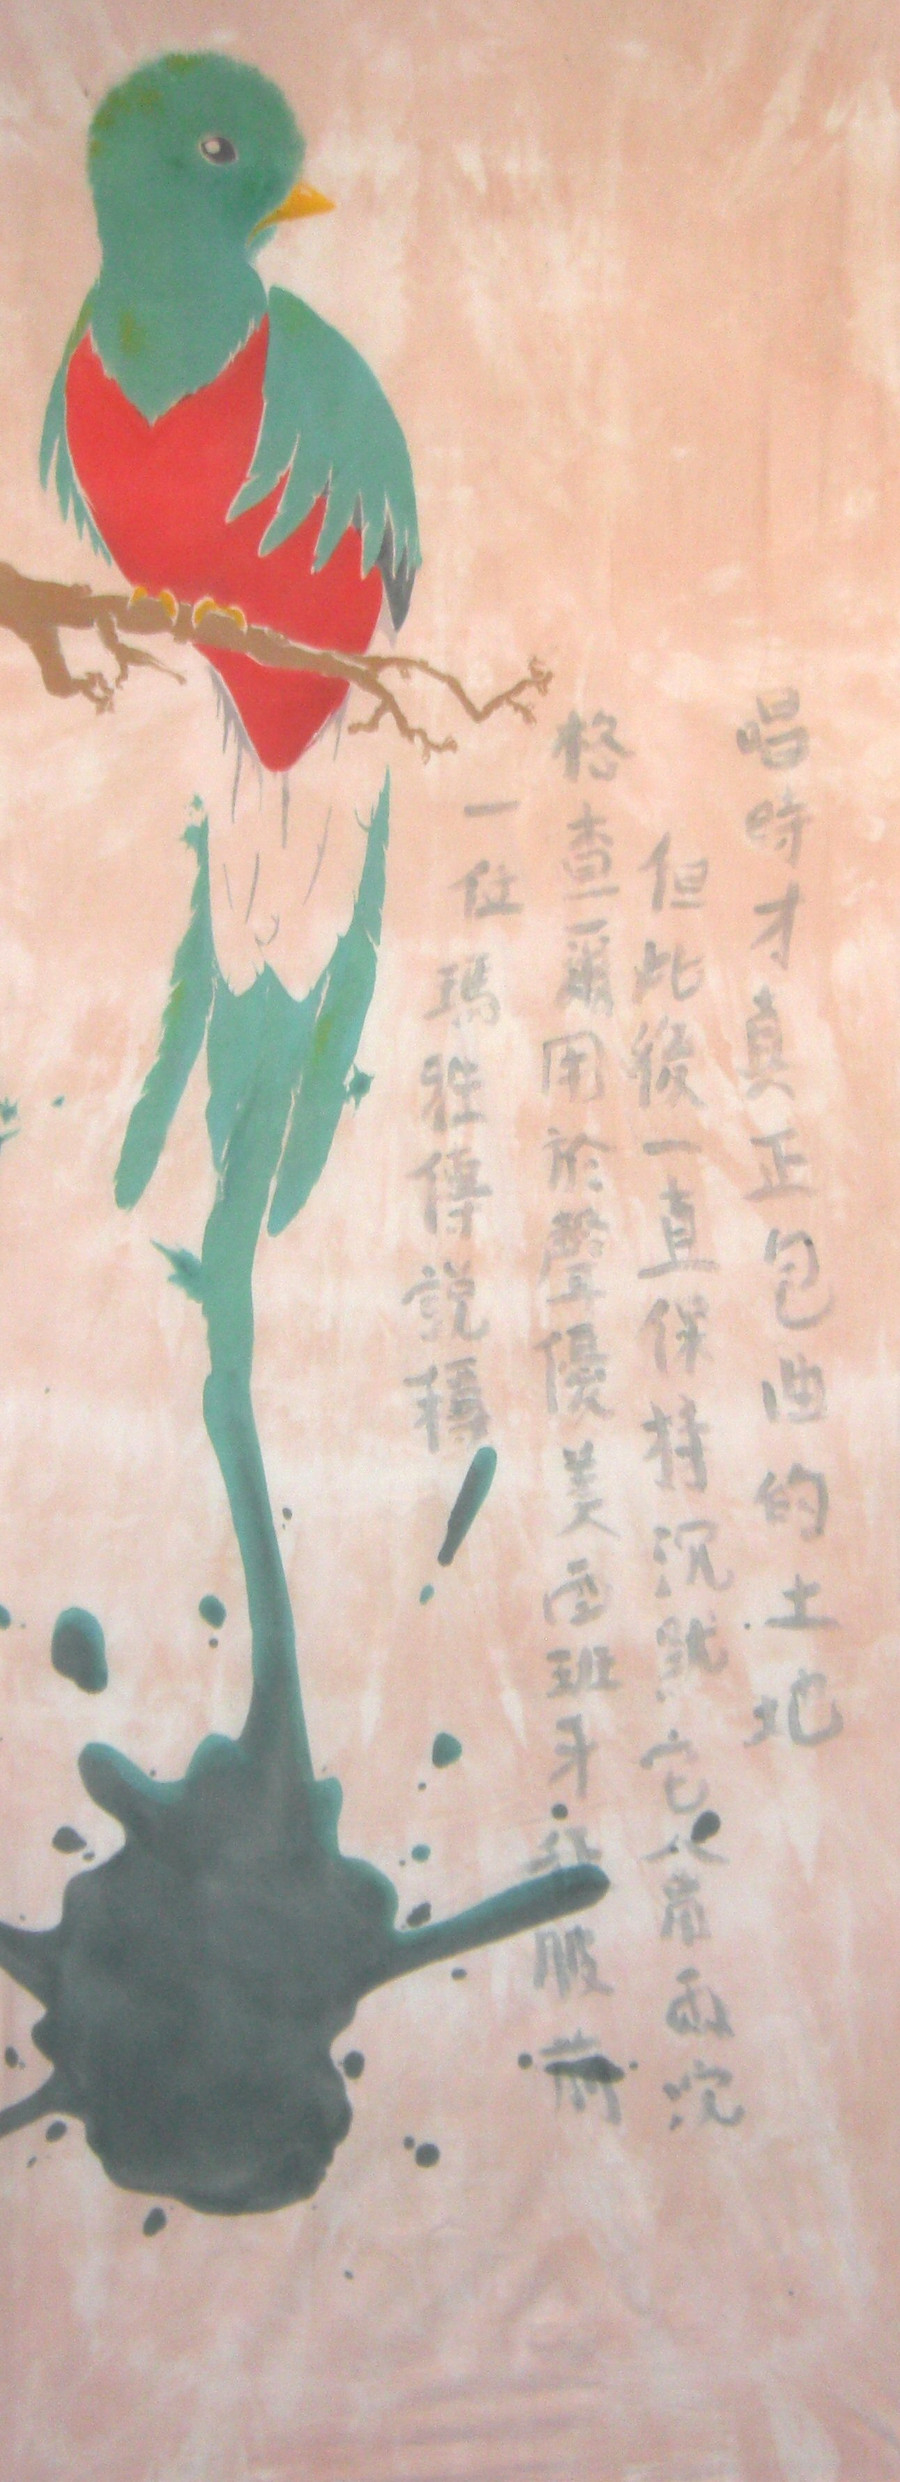 一位瑪雅傳說稱
格查爾用於聲優美西班牙征服前
但此後一直保持沉默它
唱時才真正包曲的土地